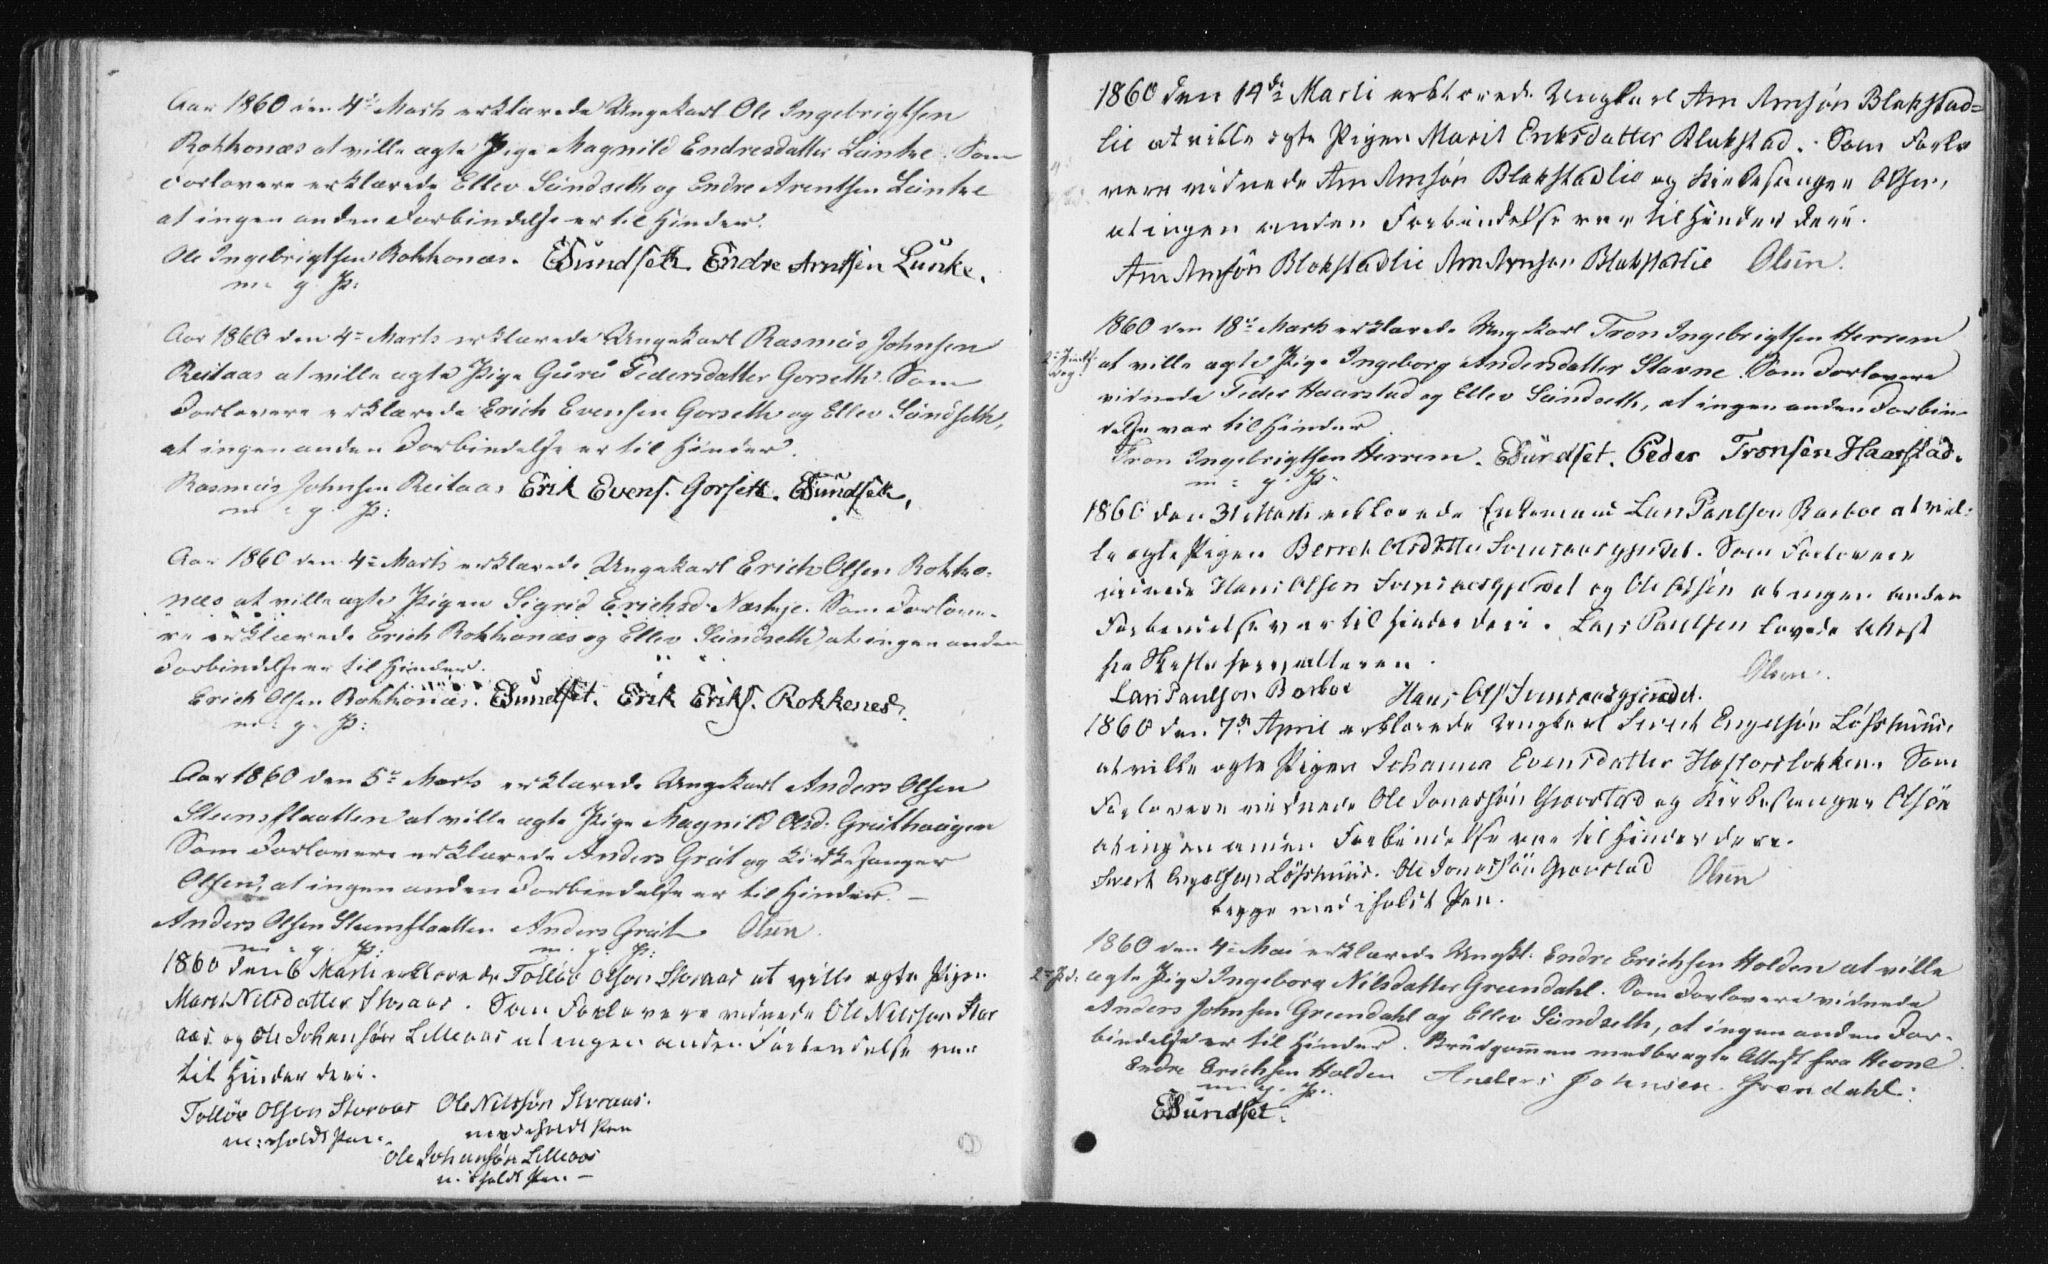 Aar 1860 den 4de Marts erklærede Ungekarl Ole Ingebrigtsen
Rokkonæs at ville ægte Pige Magnild Endresdatter Lünke. Som
Forlovere erklærede Ellev Sündseth og Endre Arentsen Lünke
at ingen anden Forbindelse er til Hinder.
Ole Ingebrigtsen Rokkonæs. ESundseth Endre Arntsen Lunke.
m. g. P:
Aar 1860 den 4de Marts erklærede Ungekarl Rasmüs Johnsen
Reitaas at ville ægte Pige Gürü Pedersdatter Gorseth. Som
Forlovere erklærede Erich Evensen Gorseth og Ellev Sündseth,
at ingen anden Forbindelse er til Hinder.
Rasmüs Johnsen Reitaas Erik Evens. Gorseth. ESundseth,
m: g. P:
Aar 1860 den 4de Marts erklærede Ungekarl Erich Olsen Rokko-
næs at ville ægte Pigen Sigrid Erichsd. Næstuje. Som Forlove-
re erklærede Erich Rokkonæs og Ellev Sündseth at ingen anden
Forbindelse er til Hinder.
Erich Olsen Rokkonæs. ESundset. Erik Eriks. Rokkenes.
m: g. P:
Aar 1860 den 5te Marts erklærede Ungekarl Anders Olsen
at ville ægte Pige Magnild Olsd. Gruthaügen
Som Forlovere erklærede Anders Grüt og Kirkesanger
Olsen, at ingen anden Forbindelse er til Hinder. —
Anders Olsen Anders Grüt Olsen.
m: g. P: m. g. P:
1860 den 6 Marti erklærede Tolløv Olsen Storaas at ville ægte Pigen
Marit Nilsdatter Storaas. Som Forlovere vidnede Ole Nilsson Stor
aas og Ole Johansøn Lilleaas at ingen anden Forbindelse var
til Hinder deri.
Tolløv Olson Storaas Ole Nilssøn Storaas.
m: iholdt Pen. med iholdt Pen
Ole Johansøn Lilleaas
m. iholdt Pen. —
1860 den 14de Marti erklærede Ungkarl Arn Arnsøn Blakstad=
lie at ville ægte Pigen Marit Eriksdatter Blakstad. Som Forlo
vere vidnede Arn Arnsøn Blakstadlie og Kirkesanger Olsen,
at ingen anden Forbindelse var til Hinder deri.
Arn Arnsøn Blakstadlie Arn Arnson Blakstadlie Olsen.
1860 den 18de Marts erklærede Ungekarl Tron Ingebrigtsen Herrem
at ville ægte Pige Ingeborg Andersdatter Stavne. Som Forlovere
vidnede Peder Haarstad og Ellev Sündseth, at ingen anden Forbin-
delse var til Hinder
Tron Ingebrigtsen Herrem. ESundset. Peder Tronsen Haarstad.
m: g. P:
1860 den 31 Marti erklærede Enkemand Lars Paulson Barboe at vil-
le ægte Pigen Berret Olsdatter. Som Forlovere
vidnede Hans Olsen og Ole Olsøn at ingen anden
Forbindelse var til Hinder deri. Lars Paulsen lovede Attest
fra Skifteforvalteren.
Olsen.
Lars Paulson Barboe Hans Ols
1860 den 7de April erklærede Ungkarl Sivert Engelsøn Løfshuus,
at ville ægte Pigen Johanna Evensdatter. Som
Forlovere vidnede Ole Jonassøn Gravstad og Kirkesanger Olsøn
at ingen anden Forbindelse var til Hinder deri.
Sivert Engelsøn Løfshuus. Ole Jonassøn Gravstad Olsen
begge med iholdt Pen.
1860 den 4de Mai erklærede Ungk: Endre Erichsen Holden at ville
ægte Pige Ingeborg Nilsdatter Grøndahl. Som Forlovere vidnede
Anders Johnsen Grøndahl og Ellev Sündseth, at ingen anden For-
bindelse er til Hinder. Brudgommen medbragte Attest fra Heone.
Endre Erichsen Holden Anders Johnsen Grøndahl.
m. g. P.
ESundset.